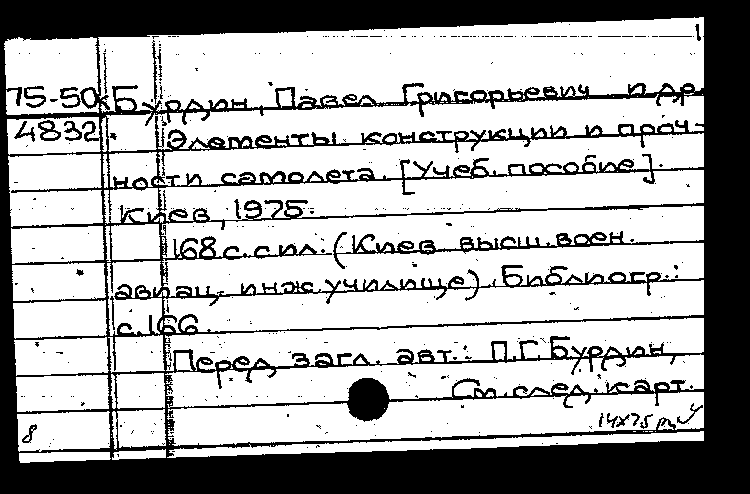 1
75-50к Бурдин, Павел Григорьевич и др.
4832 Элементы конструкции и проч-
ности самолета. [Учеб. пособие].
Киев, 1975.
168 с. с ил. (Киев высш. воен.
авиац. инж. училище). Библиогр.:
с. 166.
Перед загл. авт.: П.Г. Бурдин,
См. след. карт.
8